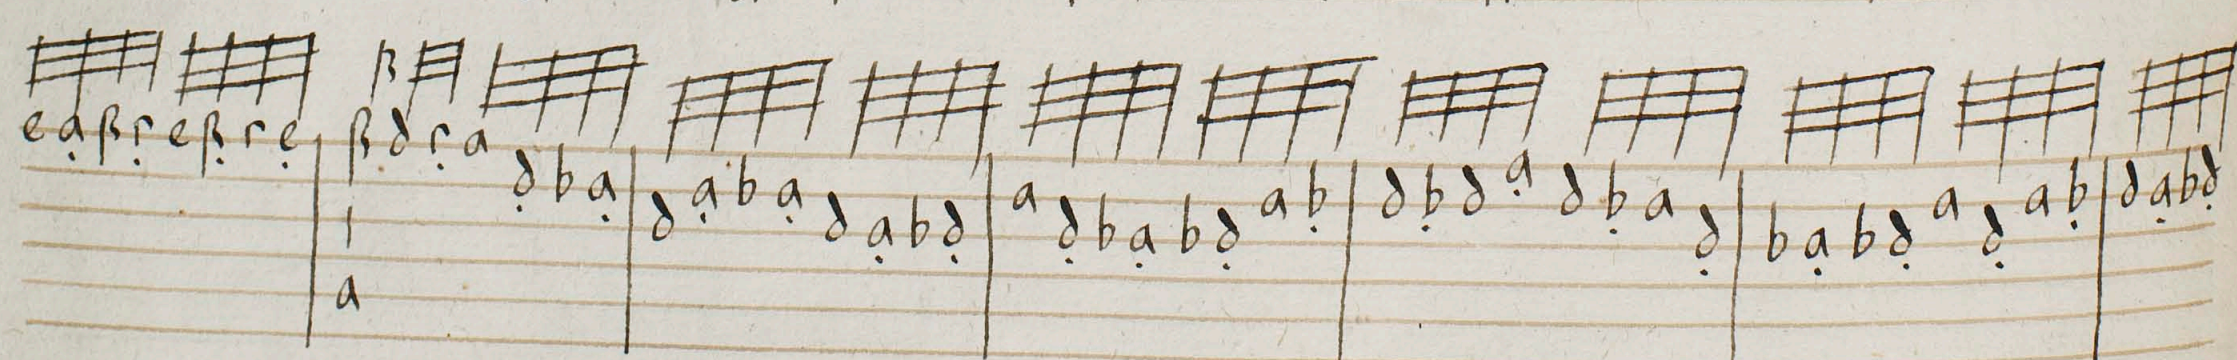 e a ß r e ß r e ß d r a d b a d a b a d a b d a d b a b d a b d b d a d b a d b a b d a d a b d a b d
a